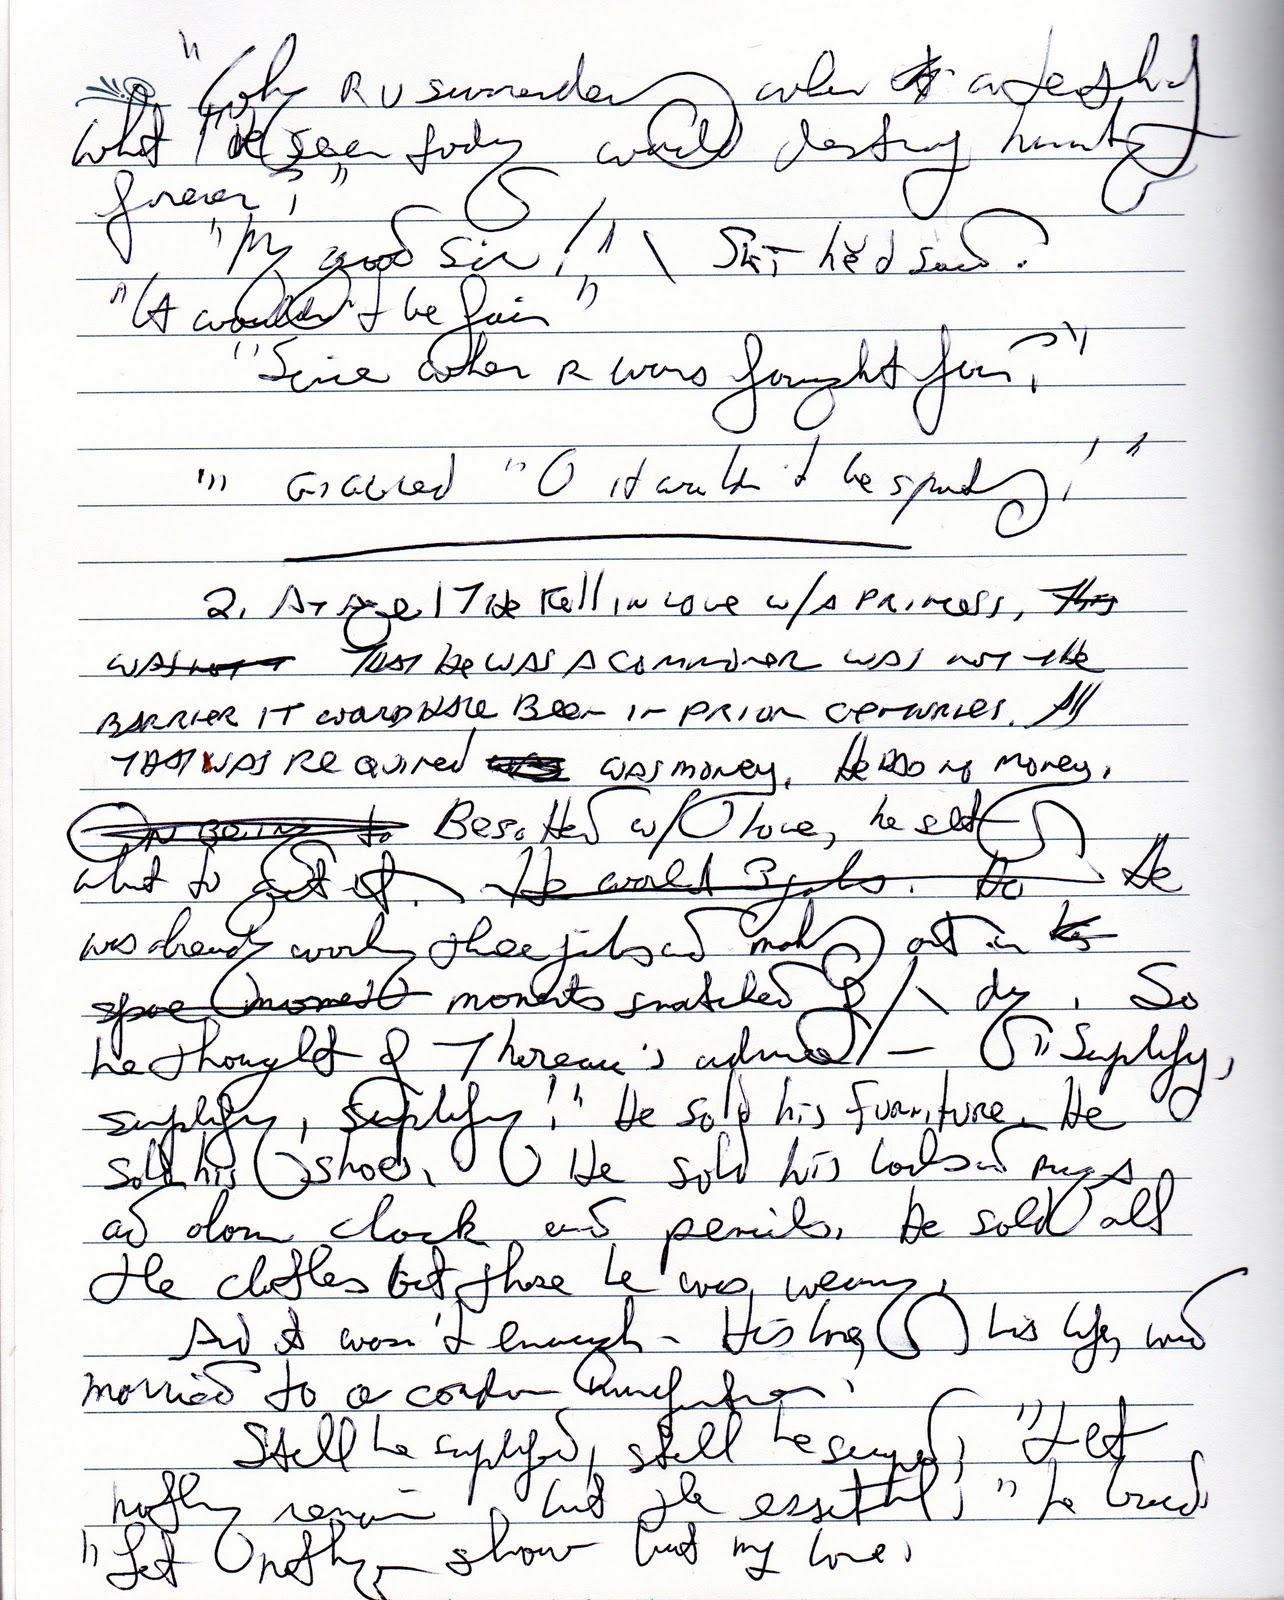 "Why R U surrender when a
what I've seen today would destroy
forever?"
"My good Sir!" he'd said.
"It wouldn't be fair"
"Since when R wars fought fair?"
"O it wouldn't be !"
2. AT Age 17 He Fell IN LOVE w/A PRINCESS, This
WAS not THAT He WAS A COMMONER WAS NOT THE
BARRIER IT WOULD HAVE BEEN IN PRIOR CENTURIES. All
THAT WAS REQUIRED was WAS MONEY. He HAD NO MONEY.
ON BEING to Besotted w/ love, he set
about to get it. He worked 3 jobs. He
was already working three jobs and making art in his
spare moments moments snatched of day. So
he thought of Thoreau's advice — "Simplify,
simplify, simplify!" He sold his FURNITURE. He
sold his shoes. He sold his books and rugs
and alarm clock and pencils. He sold all
the clothes but those he was wearing.
And it wasn't enough. His love, his life, was
married to a
Still he simplified, still he ; "Let
nothing remain but the essential," he
"Let nothing show but my love.